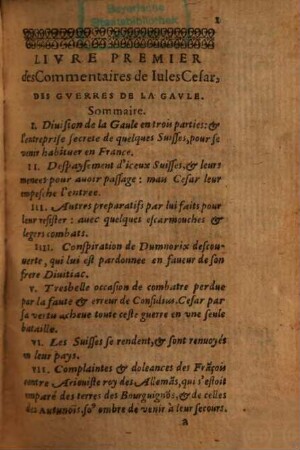 Bayerische
Staatsbibliothek
1
LIVRE PREMIER
des Commentaires de Iules Cesar,
DES GVERRES DE LA GAVLE.
Sommaire.
I. Diuision de la Gaule en trois parties: &
l'entreprise secrete de quelques Suisses, pour se
venir habituer en France.
II. Despaysement d'iceux Suisses, & leurs
menees pour auoir passage: mais Cesar leur
impesche l'entree.
III. Autres preparatifs par lui faits pour
leur resister: auec quelques escarmouches &
legers combats.
IIII. Conspiration de Dumnorix descou-
uerte, qui lui est pardonnée en faueur de son
frere Diuitiac.
V. Tresbelle occasion de combatre perdue
par la faute & erreur de Considius. Cesar par
sa vertu acheue toute ceste guerre en vne seule
bataille.
VI. Les Suisses se rendent, & sont renuoyés
en leur pays.
VII. Complaintes & doleances des Frãçois
contre Arioviste roy des Allemãs, qui s'estoit
imparé des terres des Bourguignõs, & de celles
des Autunois, so⁹ ombre de venir à leur secours.
a